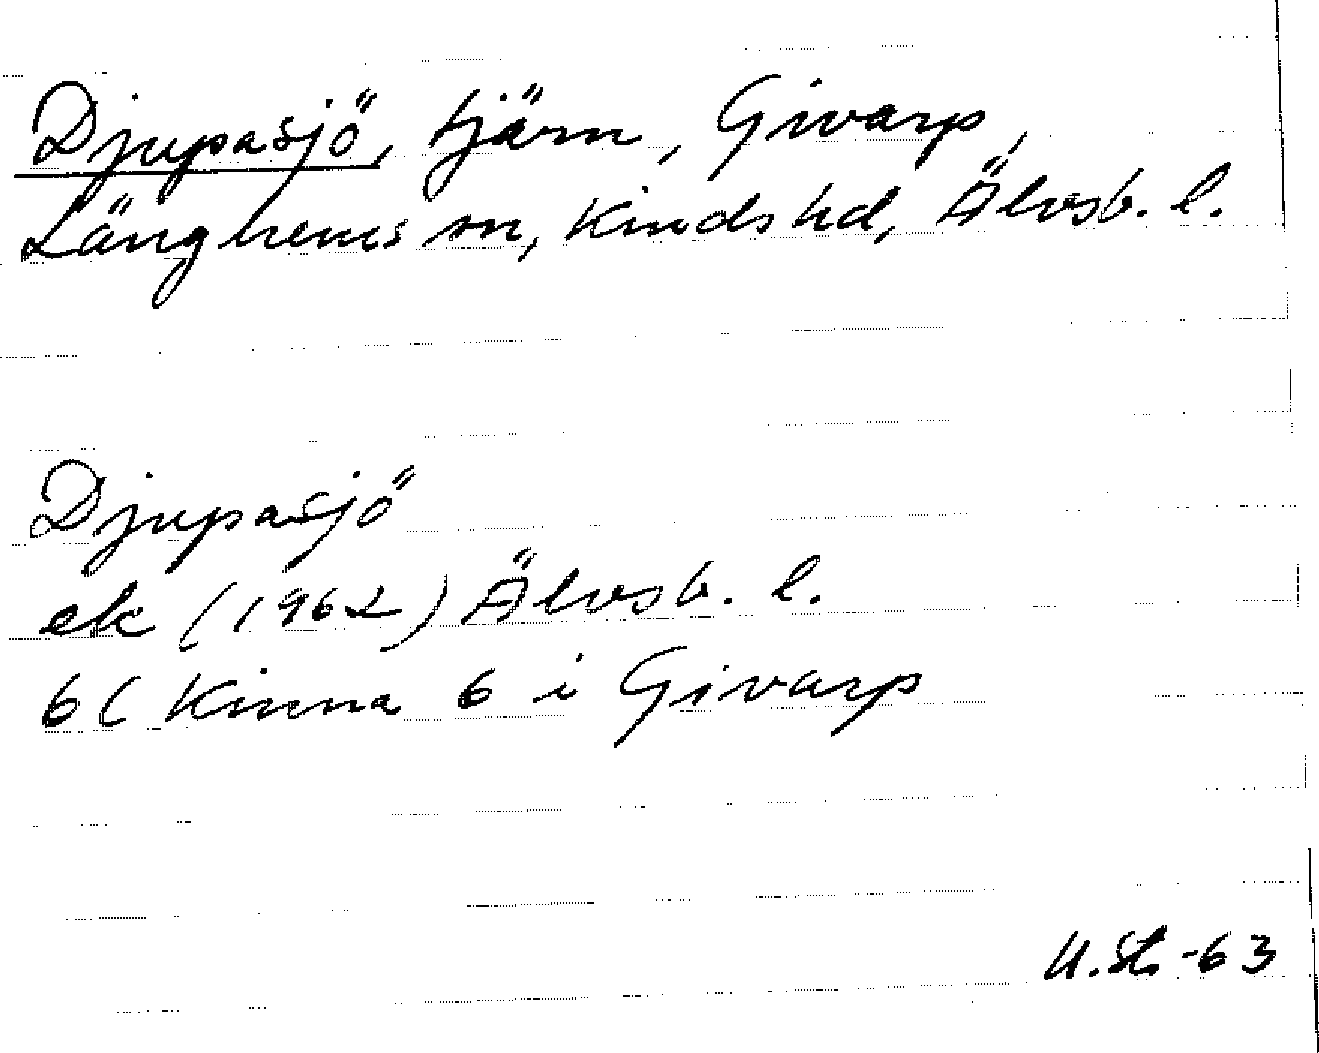 Djupasjö, tjärn, Givarp,
Länghems sn, Kinds hd, Älvsb. l.
Djupasjö
ek (1962) Älvsb. l.
6C Kinna 6 i Givarp
-63